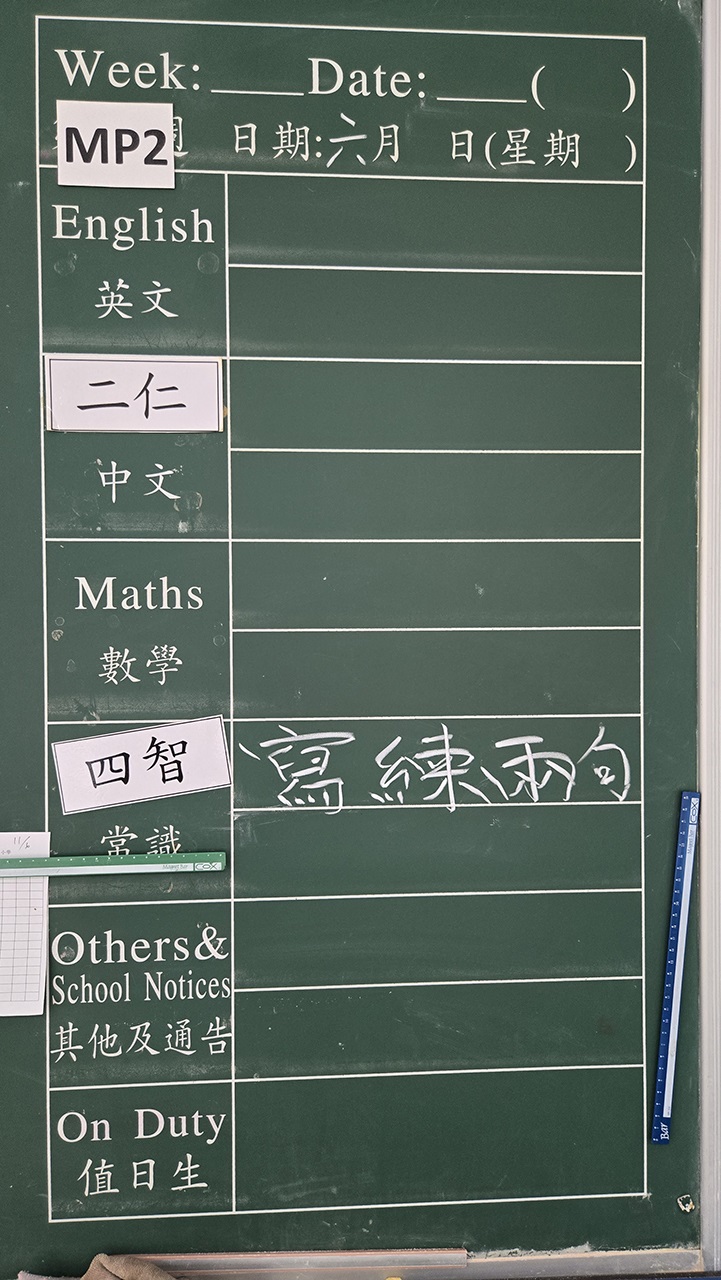 Week: ____Date: ____( )
MP2 週 日期:六月 日(星期 )
English
英文
二仁
中文
Maths
數學
四智 寫練兩句
常識
COX
Others&
School Notices
其他及通告
On Duty
值日生
COX
Bar
11/6